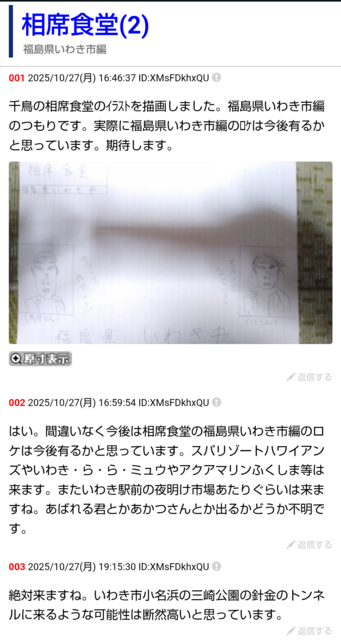 相席食堂(2)
福島県いわき市編
001 2025/10/27(月) 16:46:37 ID:XMsFDkhxQU
千鳥の相席食堂のｲﾗｽﾄを描画しました。福島県いわき市編
のつもりです。実際に福島県いわき市編のﾛｹは今後有るか
と思っています。期待します。
相席食堂
福島県いわき市
原寸表示
返信する
002 2025/10/27(月) 16:59:54 ID:XMsFDkhxQU
はい。間違いなく今後は相席食堂の福島県いわき市編のロ
ケは今後有るかと思っています。スパリゾートハワイアン
ズやいわき・ら・ら・ミュウやアクアマリンふくしま等は
来ます。またいわき駅前の夜明け市場あたりぐらいは来ま
すね。あばれる君とかあかつさんとか出るかどうか不明で
す。
返信する
003 2025/10/27(月) 19:15:30 ID:XMsFDkhxQU
絶対来ますね。いわき市小名浜の三崎公園の針金のトンネ
ルに来るような可能性は断然高いと思っています。
返信する